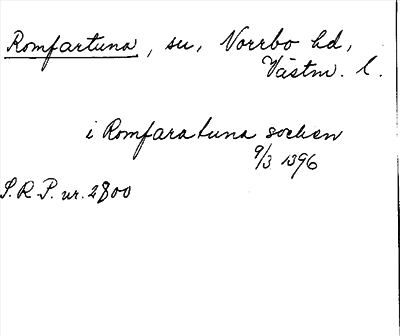 Romfartuna, sn, Norrbo hd,
Västm. l.
i Romfaratuna socken
9/3 1396
S.R.P. nr. 2800